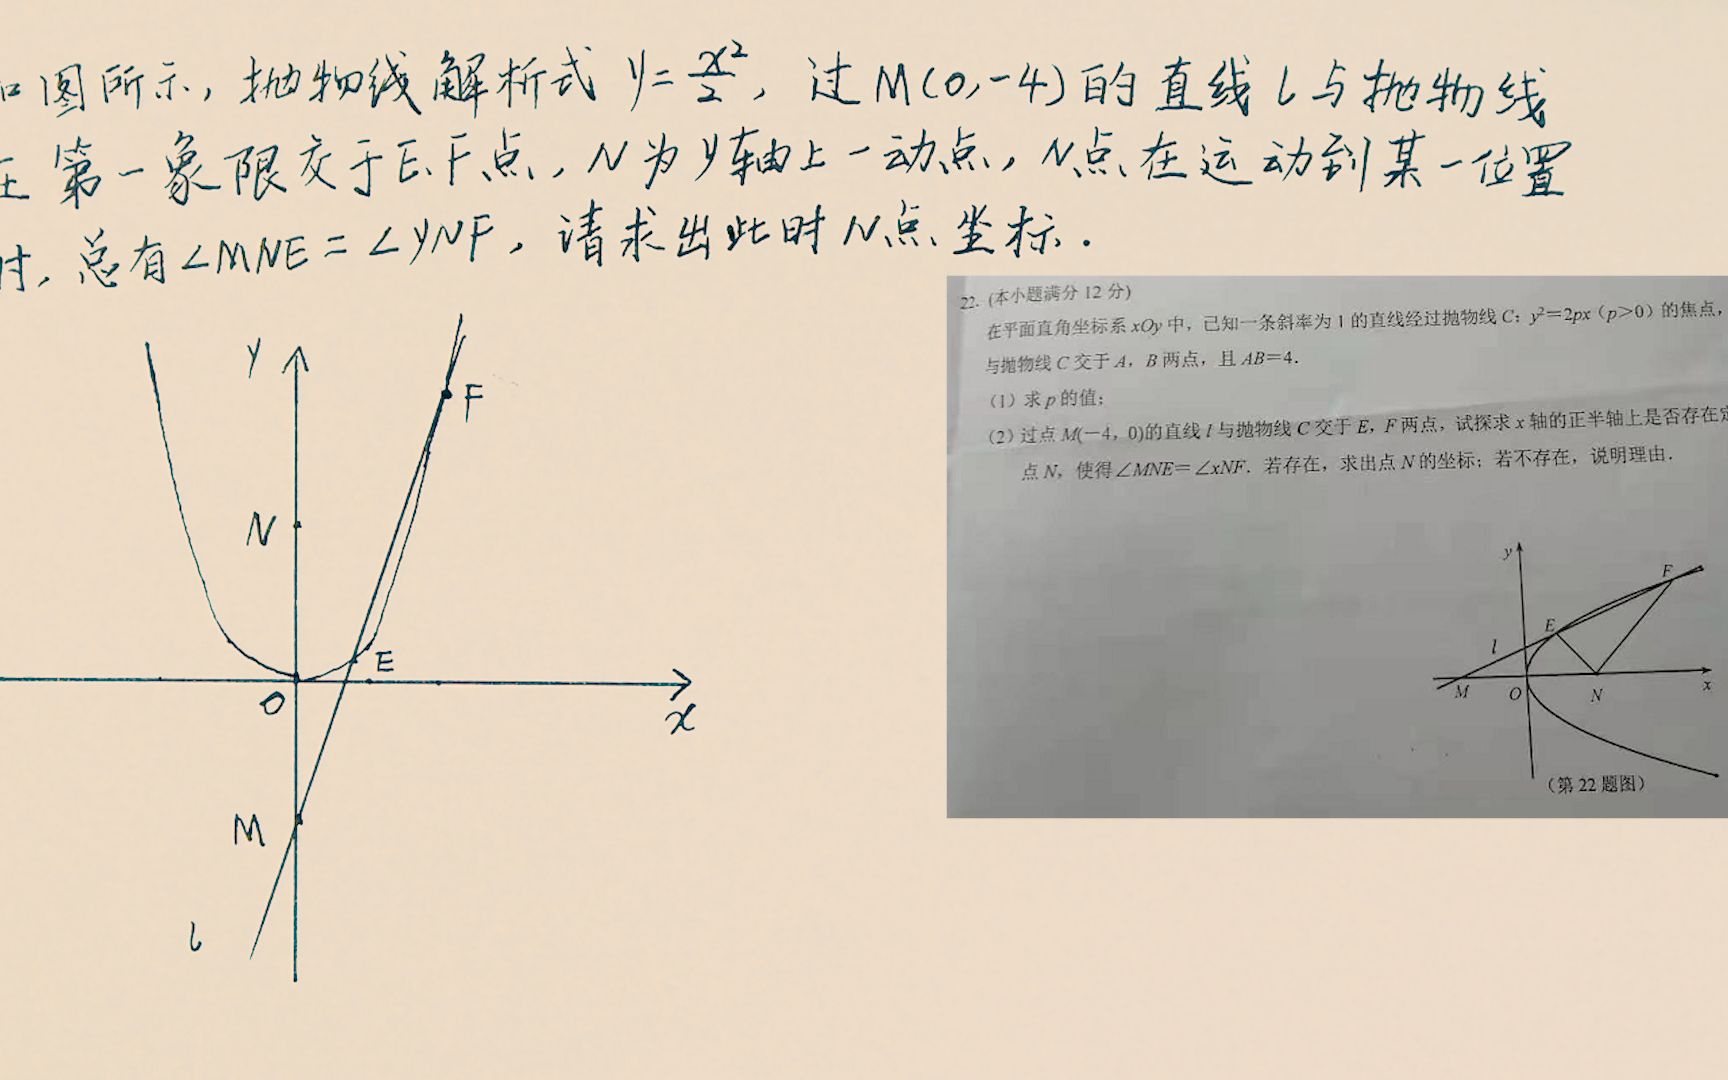 图所示，抛物线解析式 y=x²/2，过M(0,-4)的直线l与抛物线
第一象限交于E、F点，N为y轴上一动点，N点在运动到某一位置
时，总有∠MNE=∠yNF，请求出此时N点坐标.
22. (本小题满分 12 分)
在平面直角坐标系 xOy 中，已知一条斜率为 1 的直线经过抛物线 C：y²=2px（p>0）的焦点，
与抛物线 C 交于 A，B 两点，且 AB=4．
（1）求 p 的值；
（2）过点 M(－4，0)的直线 l 与抛物线 C 交于 E，F 两点，试探求 x 轴的正半轴上是否存在定
点 N，使得∠MNE=∠xNF．若存在，求出点 N 的坐标；若不存在，说明理由．
y
F
N
E
O
x
M
l
y
F
E
l
M
O
N
x
（第 22 题图）